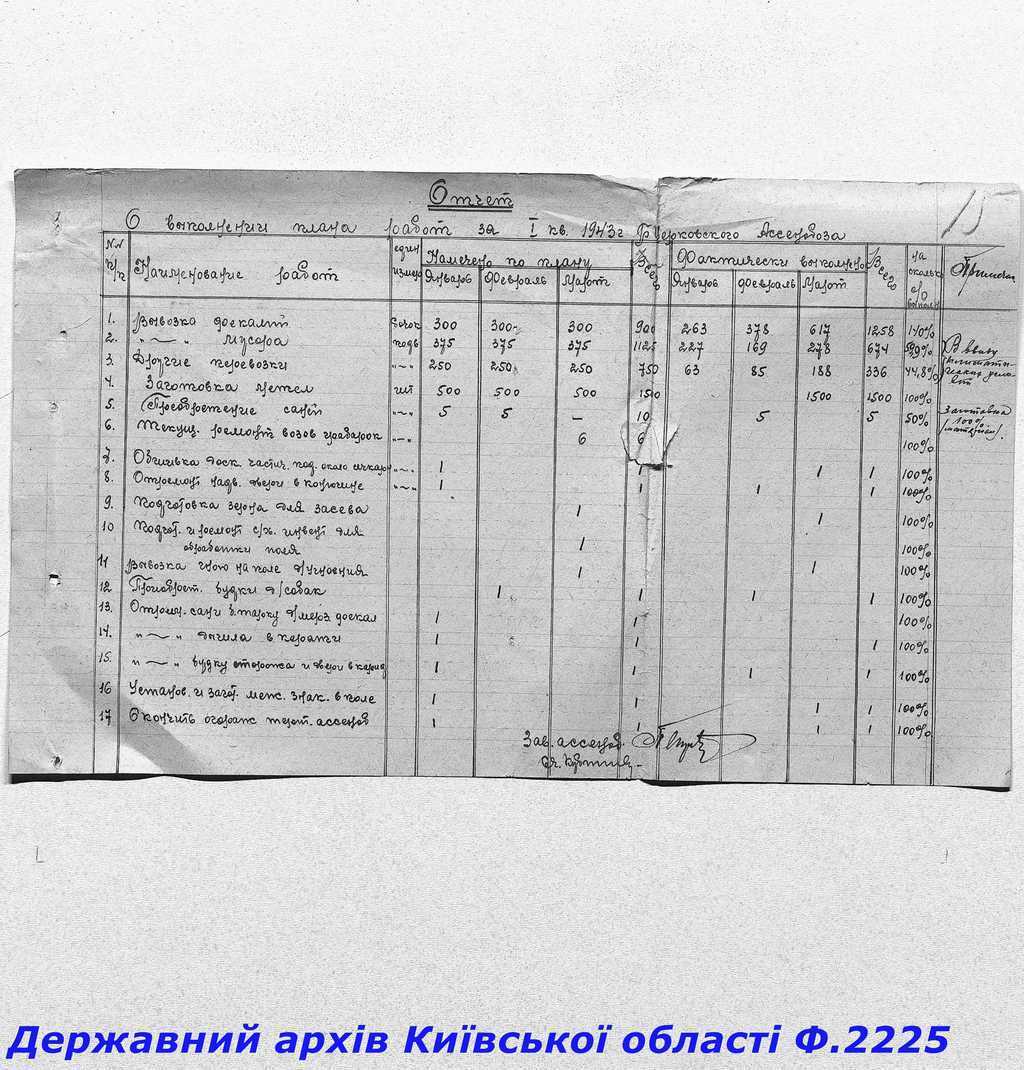 15
Отчет
О выполнении плана работ за I кв. 1943г Б. Церковского Ассенобоза
NN п/п Наименование работ един измер Намечено по плану Всего Фактически выполнено Всего на сколько % выполн
Январь Февраль Март Январь Февраль Март
1. Вывозка фекалий бочок 300 300 300 900 263 378 617 1258 140%
2. "—" мусора подв 375 375 375 1125 227 169 278 674 59,9% В ввиду
3. Другие перевозки "-" 250 250 250 750 63 85 188 336 44,8%
4. Заготовка метел шт 500 500 500 1500 1500 1500 100%
5. Приобретение саней "-" 5 5 — 10 5 5 50% Заготовка 100%
6. Текущ. ремонт возов грабарок "-" 6 6 100%
7. Обшивка доск. частич. под. около "-" 1 1 1 1 100%
8. Отремонт надв. двери в конюшне "-" 1 1 1 1 100%
9. Подготовка зерна для засева 1 1 100%
10 Подгот. и ремонт с/х. инвент для
обработки поля 1 100%
11 Вывозка гною на поле 1 1 100%
12 Приобрет. будки д/собак 1 1 1 1 100%
13. 1 1 100%
14. "—" дышла 1 1 1 100%
15. "—" будку сторожа и двери 1 1 1 1 100%
16 Установ. и загот. меж. знак. в поле 1 1 1 1 100%
17 Окончить огораж терит. ассеноб 1 1 1 1 100%
Зав. ассеноб.
Державний архів Київської області Ф.2225